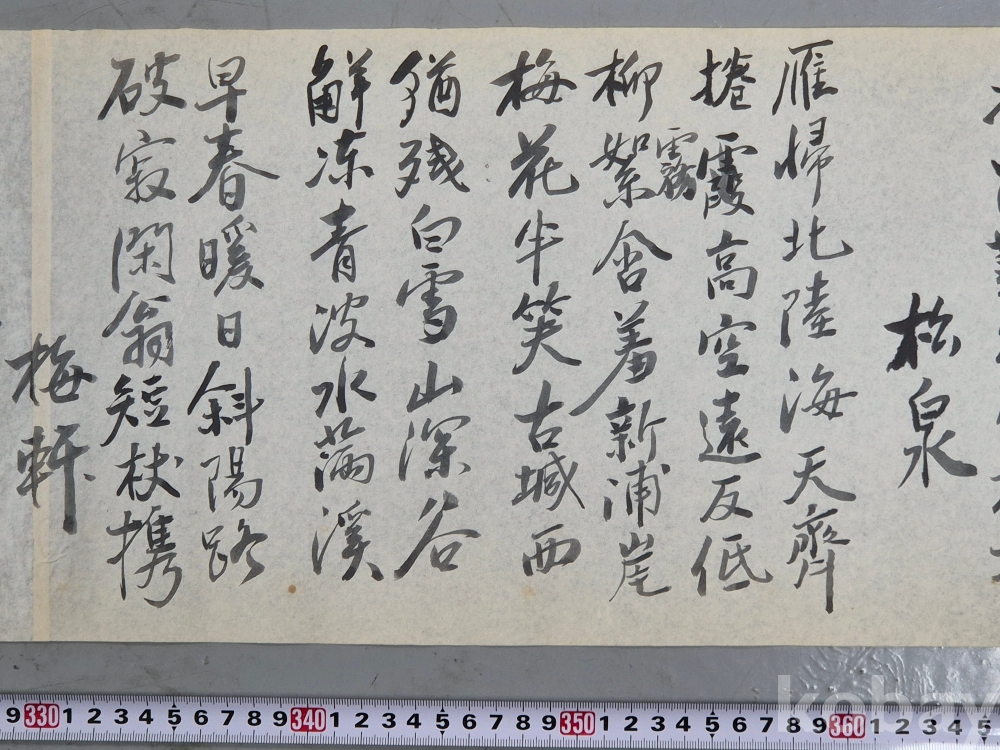 松泉
雁帰北陸海天齊
捲霞高空遠反低
霧
柳絮含羞新浦崖
梅花半笑古城西
猶残白雪山深谷
觧凍青波水満溪
早春暖日斜陽路
破寂閑翁短杖携
梅軒
9 330 1 2 3 4 5 6 7 8 9 340 1 2 3 4 5 6 7 8 9 350 1 2 3 4 5 6 7 8 9 360 1 2 3 4 5
kobay